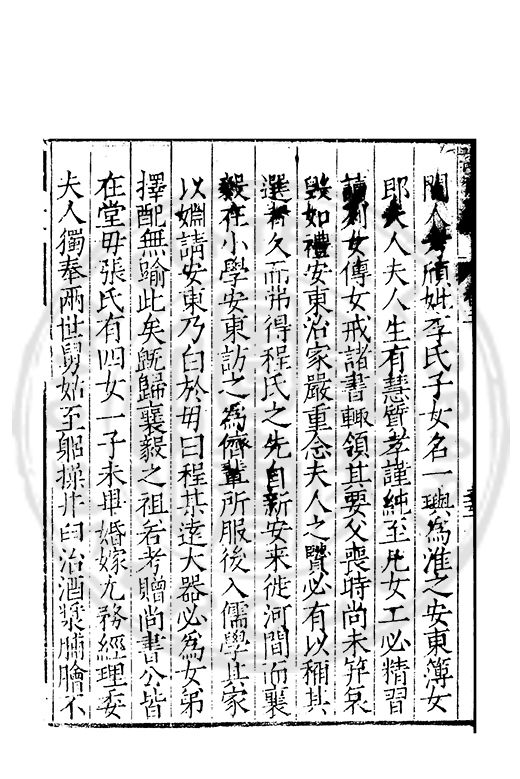 人頎妣李氏子女名一璵為淮之安東簿女
即夫人夫人生有慧質孝謹純至凡女工必精習
讀列女傳女戒諸書輒領其要父喪時尚未笄哀
毀如禮安東治家嚴重念夫人之賢必有以稱其
選者久而弗得程氏之先自新安来徙河間而襄
毅在小學安東訪之為儕軰所服後入儒學其家
以婣請安東乃白於毋曰程某遠大器必為女弟
擇配無踰此矣旣歸襄毅之祖若考贈尚書公皆
在堂毋張氏有四女一子未畢婚嫁九務經理委
夫人獨奉兩世舅姑至躬操井臼治酒漿脯膾不